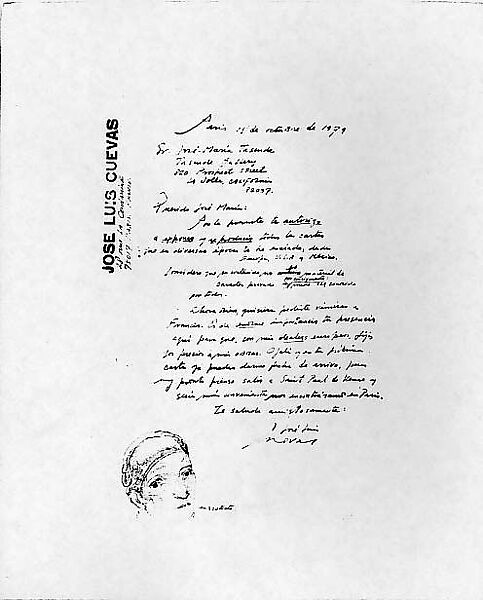 JOSE LUIS CUEVAS
Paris de octubre de 1979
Sr. José-María Tasende
Tasende Gallery
820 Prospect Street
La Jolla, California
92037.
Querido José María:
Por la presente te autorizo
a exponer y reproducir todas las cartas
que en diversas épocas te he enviado, desde
Europa, USA y México.
Considero que su contenido, no material de
carácter privado
por todos.
Ahora bien, quisiera pedirte vinieras a
Francia. Es de enorme importancia tu presencia
aquí para que, con mis dealers europeos, fijes
los precios a mis obras. Ojalá y en tu próxima
carta ya puedas darme fecha de arrivo, pues
muy pronto pienso salir a Saint Paul de Vence y
sería más conveniente nos encontráramos en Paris.
Te saluda amistosamente:
José Luis